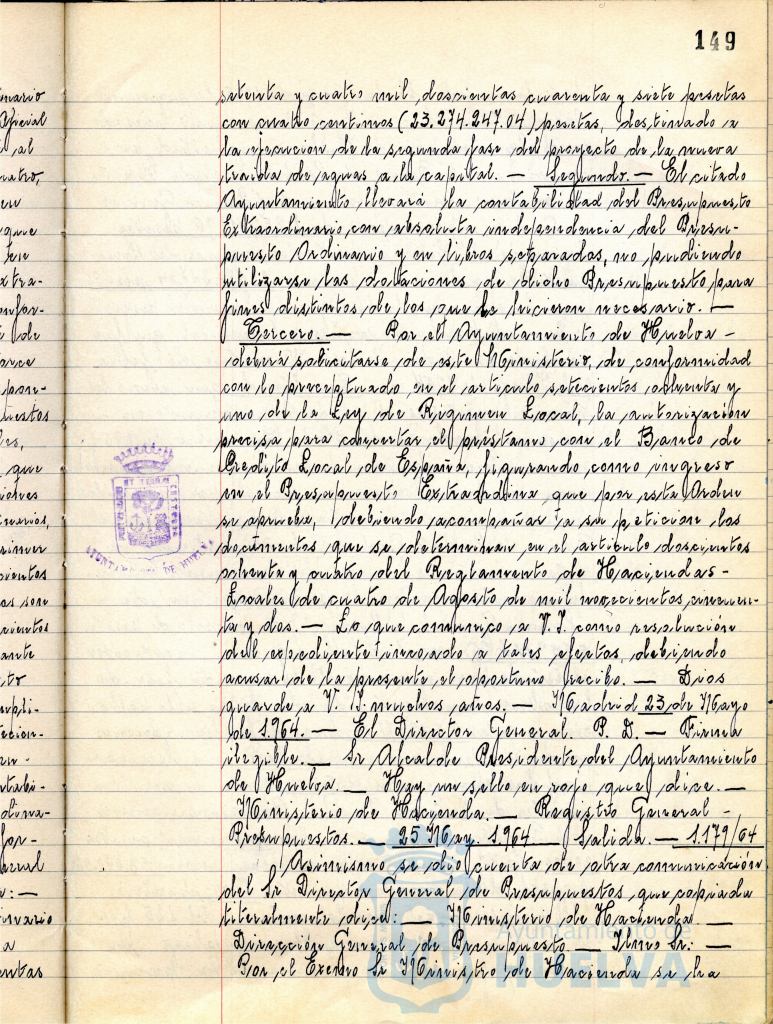 149
setenta y cuatro mil doscientas cuarenta y siete pesetas
con cuatro centimos (23.274.247.04) pesetas, destinado a
la ejecucion de la segunda fase del proyecto de la nueva
traida de aguas a la capital. — Segundo. — El citado
Ayuntamiento llevará la contabilidad del Presupuesto
Extraordinario con absoluta independencia del Presu-
puesto Ordinario y en libros separados, no pudiendo
utilizarse las dotaciones de dicho Presupuesto para
fines distintos de los que le hicieron necesario. —
Tercero. — Por el Ayuntamiento de Huelva -
deberá solicitarse de este Ministerio, de conformidad
con lo preceptuado en el articulo setecientos ochenta y
uno de la Ley de Régimen Local, la autorización
precisa para concertar el préstamo con el Banco de
Credito Local de España, figurando como ingreso
en el Presupuesto Extraordina que por esta Orden
se aprueba, debiendo acompañar a su peticion los
documentos que se determinan en el articulo doscientos
ochenta y cuatro del Reglamento de Haciendas -
Locales de cuatro de Agosto de mil novecientos cincuen-
ta y dos. — Lo que comunico a V.I. como resolución
del expediente incoado a tales efectos, debiendo
acusar de la presente el oportuno recibo. — Dios
guarde a V. I. muchos años. — Madrid 23 de Mayo
de 1.964. — El Director General. P. D. — Firma
ilegible. — Sr Alcalde Presidente del Ayuntamiento
de Huelva. — Hay un sello en rojo que dice. —
Ministerio de Hacienda. — Registro General -
Presupuestos. — 25 May. 1.964 — Salida. — 1.179/64
Asimismo se dio cuenta de otra comunicación
del Sr Director General de Presupuestos que copiada
literalmente dice: — Ministerio de Hacienda —
Dirección General de Presupuesto — Ilmo Sr: —
Por el Excmo Sr Ministro de Hacienda se ha
AYUNTAMIENTO DE HUELVA
Ayuntamiento de
HUELVA